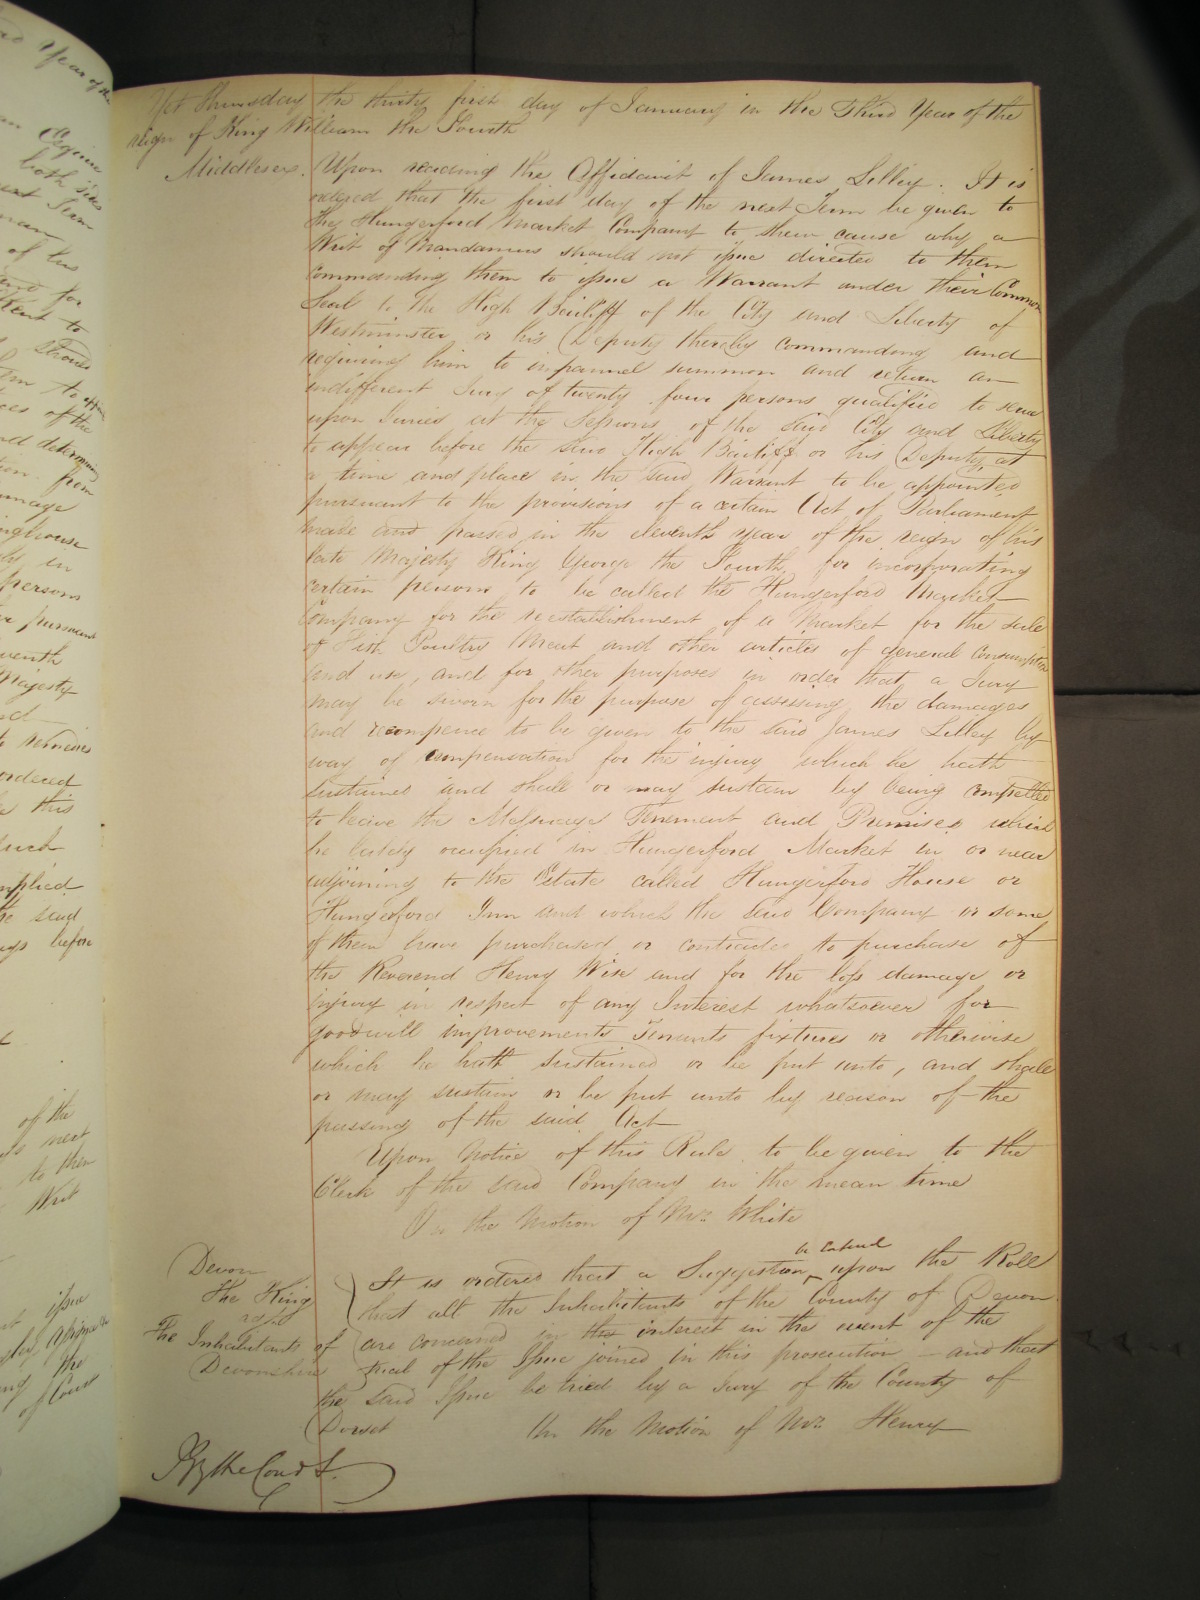 Yet Thursday the thirty first day of January in the Third Year of the
reign of King William the Fourth
Middlesex. Upon reading the Affidavit of James Lilley. It is
ordered that the first day of the next Term be given to
the Hungerford Market Company to shew cause why a
Writ of Mandamus should not issue directed to them
commanding them to issue a Warrant under their Common
Seal to the High Bailiff of the City and Liberty of
Westminster or his Deputy thereby commanding and
requiring him to impannel summon and return an
indifferent Jury of twenty four persons qualified to serve
upon Juries at the Sessions of the said City and Liberty
to appear before the said High Bailiff or his Deputy at
a time and place in the said Warrant to be appointed
pursuant to the provisions of a certain Act of Parliament
made and passed in the eleventh year of the reign of his
late Majesty King George the Fourth for incorporating
certain persons to be called the Hungerford Market
Company for the reestablishment of a Market for the sale
of Fish Poultry Meat and other articles of general consumption
and use, and for other purposes in order that a Jury
may be sworn for the purpose of assessing the damages
and recompence to be given to the said James Lilley by
way of compensation for the injury which he hath
sustained and shall or may sustain by being compelled
to leave the Messuage Tenement and Premises which
he lately occupied in Hungerford Market in or near
adjoining to the Estate called Hungerford House or
Hungerford Inn and which the said Company or some
of them have purchased or contracted to purchase of
the Reverend Henry Wise and for the loss damage or
injury in respect of any Interest whatsoever for
goodwill improvements Tenants fixtures or otherwise
which he hath sustained or be put unto, and shall
or may sustain or be put unto by reason of the
passing of the said Act
Upon Notice of this Rule to be given to the
Clerk of the said Company in the mean time
On the Motion of Mr. White
Devon
The King
agst
The Inhabitants of
Devonshire
be entered
It is ordered that a Suggestion upon the Roll
that all the Inhabitants of the County of Devon
are concerned in the interest in the event of the
trial of the Issue joined in this prosecution - and that
the said Issue be tried by a Jury of the County of
Dorset On the Motion of Mr. Henry
By the Court